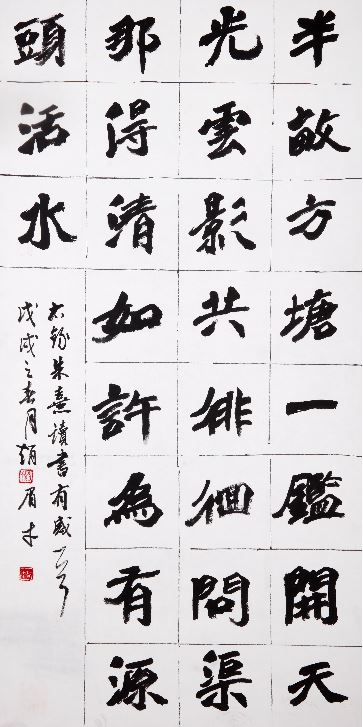 半畝方塘一鑑開天
光雲影共徘徊問渠
那得清如許為有源
頭活水
右錄朱熹讀書有感一首
戊戌之春月